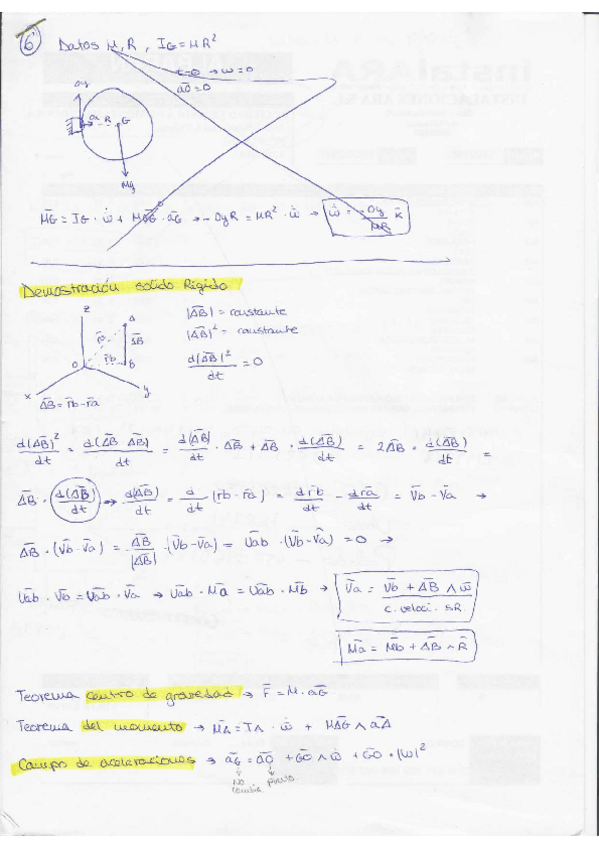 6 Datos M, R, IG = MR²
t=0 → ω=0
a̅0̅=0
oy
ox R G
Mg
M̅G̅ = IG · ω̇ + M O̅G̅ · a̅G̅ → -OyR = MR² · ω̇ → ω̇ = -Oy/MR K̅
Demostración solido Rigido
z
A
r̅a̅
A̅B̅
r̅b̅
O
B
x
y
A̅B̅ = r̅b̅ - r̅a̅
|A̅B̅| = constante
|A̅B̅|² = constante
d|A̅B̅|²/dt = 0
d(A̅B̅)²/dt = d(A̅B̅ · A̅B̅)/dt = d(A̅B̅)/dt · A̅B̅ + A̅B̅ · d(A̅B̅)/dt = 2A̅B̅ · d(A̅B̅)/dt =
A̅B̅ · d(A̅B̅)/dt → d(A̅B̅)/dt = d/dt (r̅b̅ - r̅a̅) = dr̅b̅/dt - dr̅a̅/dt = V̅b̅ - V̅a̅ →
A̅B̅ · (V̅b̅ - V̅a̅) = A̅B̅/|A̅B̅| · (V̅b̅ - V̅a̅) = U̅a̅b̅ · (V̅b̅ - V̅a̅) = 0 →
U̅a̅b̅ · V̅b̅ = U̅a̅b̅ · V̅a̅ → U̅a̅b̅ · M̅a̅ = U̅a̅b̅ · M̅b̅ → V̅a̅ = V̅b̅ + A̅B̅ ∧ ω̅
c. veloci. S.R.
M̅a̅ = M̅b̅ + A̅B̅ ∧ R̅
Teorema centro de gravedad → F̅ = M · a̅G̅
Teorema del momento → M̅A̅ = IA · ω̇ + MA̅G̅ ∧ a̅A̅
Campo de aceleraciones → a̅G̅ = a̅O̅ + G̅O̅ ∧ ω̇ + G̅O̅ · |ω|²
No cambia
punto